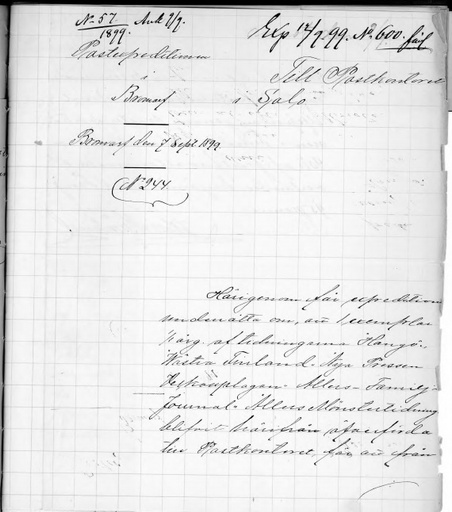 No 57. Ank 9/9.
1899.
Exp 12/9.99. No 600.
Postexpeditionen
i
Bromarf
Till Postkontoret
i Salo.
Bromarf den 7 Sept 1899
No 244
Härigenom får expeditionen
underrätta om, att 1 exemplar
1/4 årg. af tidningarna Hangö.,
Västra Finland. Nya Pressen
Allers-Familj-
Journal. Allers Mönstertidning
blifvit härifrån öfverförda
till Postkontoret, för att från